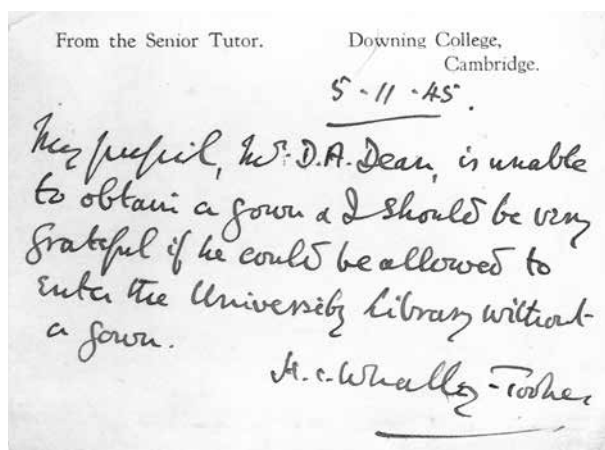 From the Senior Tutor.
Downing College,
Cambridge.
5-11-45.
My pupil, Mr. D.A. Dean, is unable
to obtain a gown & I should be very
grateful if he could be allowed to
enter the University Library without
a gown.
H.C. Whalley-Tooker